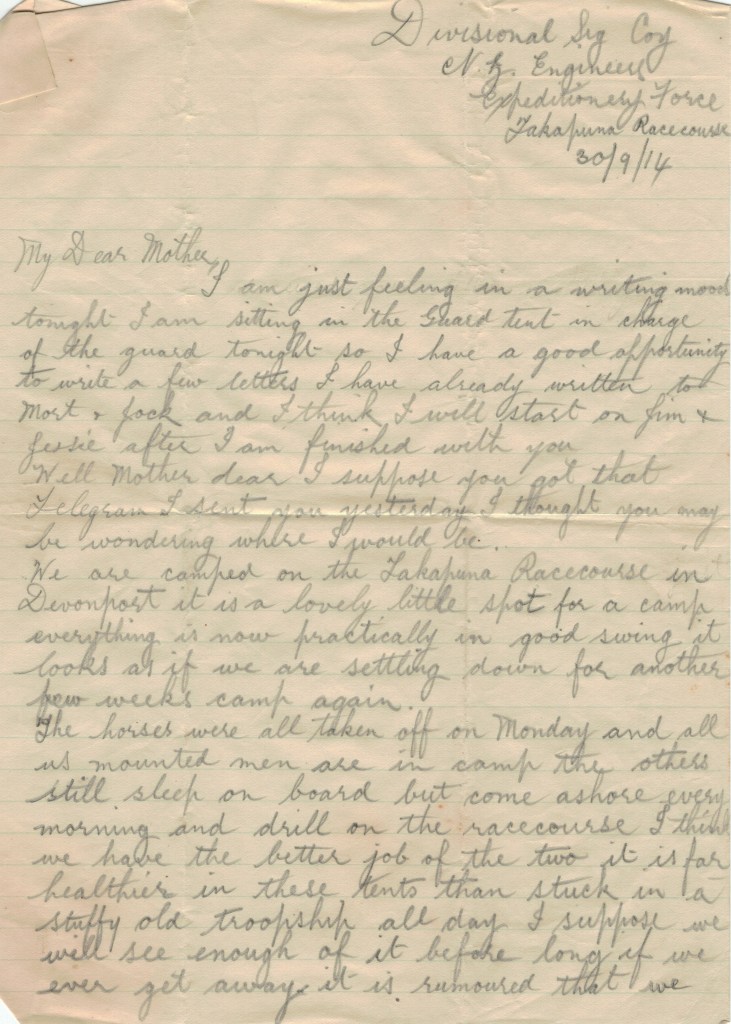 Divisional Sig Coy
N.Z. Engineers
Expeditionery Force
Takapuna Racecourse
30/9/14
My Dear Mother,
I am just feeling in a writing mood
tonight I am sitting in the Guard tent in charge
of the guard tonight so I have a good opportunity
to write a few letters I have already written to
Mort & Jock and I think I will start on Jim &
Jessie after I am finished with you
Well Mother dear I suppose you got that
Telegram I sent you yesterday I thought you may
be wondering where I would be.
We are camped on the Takapuna Racecourse in
Devonport it is a lovely little spot for a camp
everything is now practically in good swing it
looks as if we are settling down for another
few weeks camp again.
The horses were all taken off on Monday and all
us mounted men are in camp the others
still sleep on board but come ashore every
morning and drill on the racecourse I think
we have the better job of the two it is far
healthier in these tents than stuck in a
stuffy old troopship all day I suppose we
will see enough of it before long if we
ever get away. it is rumoured that we